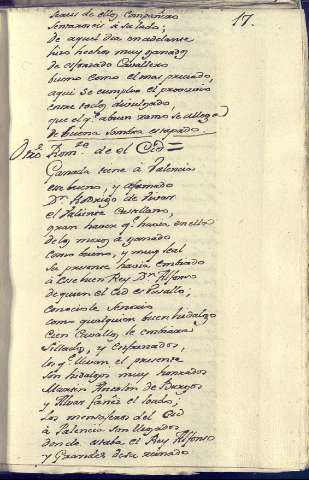 17.
seais de ellos Compañero
sentareis à su lado;
de aquel dia en adelante
hizo hechos muy granados
de esforzado Cavallero
bueno como el mas preciado,
aqui se cumple el proverbio
entre todos divulgado,
que el qe. a buen ramo se allega
de buena sombra es tapado.
Otro Romce. de el Cid =
Ganada tiene à Valencia
ese bueno, y afamado
Dn. Rodrigo de Vivar
el Valiente Castellano,
gran haver qe. havia en ella
de los moros à ganado
como bueno, y muy leal
su presente havia embiado
à ese buen Rey Dn. Alfonso
de quien el Cid es Vasallo,
conociole Senorio
como qualquier buen hidalgo
Cien Cavallos le embiava
Sillados, y enfrenados,
los qe. llevan el presente
son hidalgos muy honrados
Martin Antolin de Burgos
y Alvar fañez el loado;
los mensageros del Cid
à Valencia son llegados
donde estaba el Rey Alfonso
y Grandes de su reinado